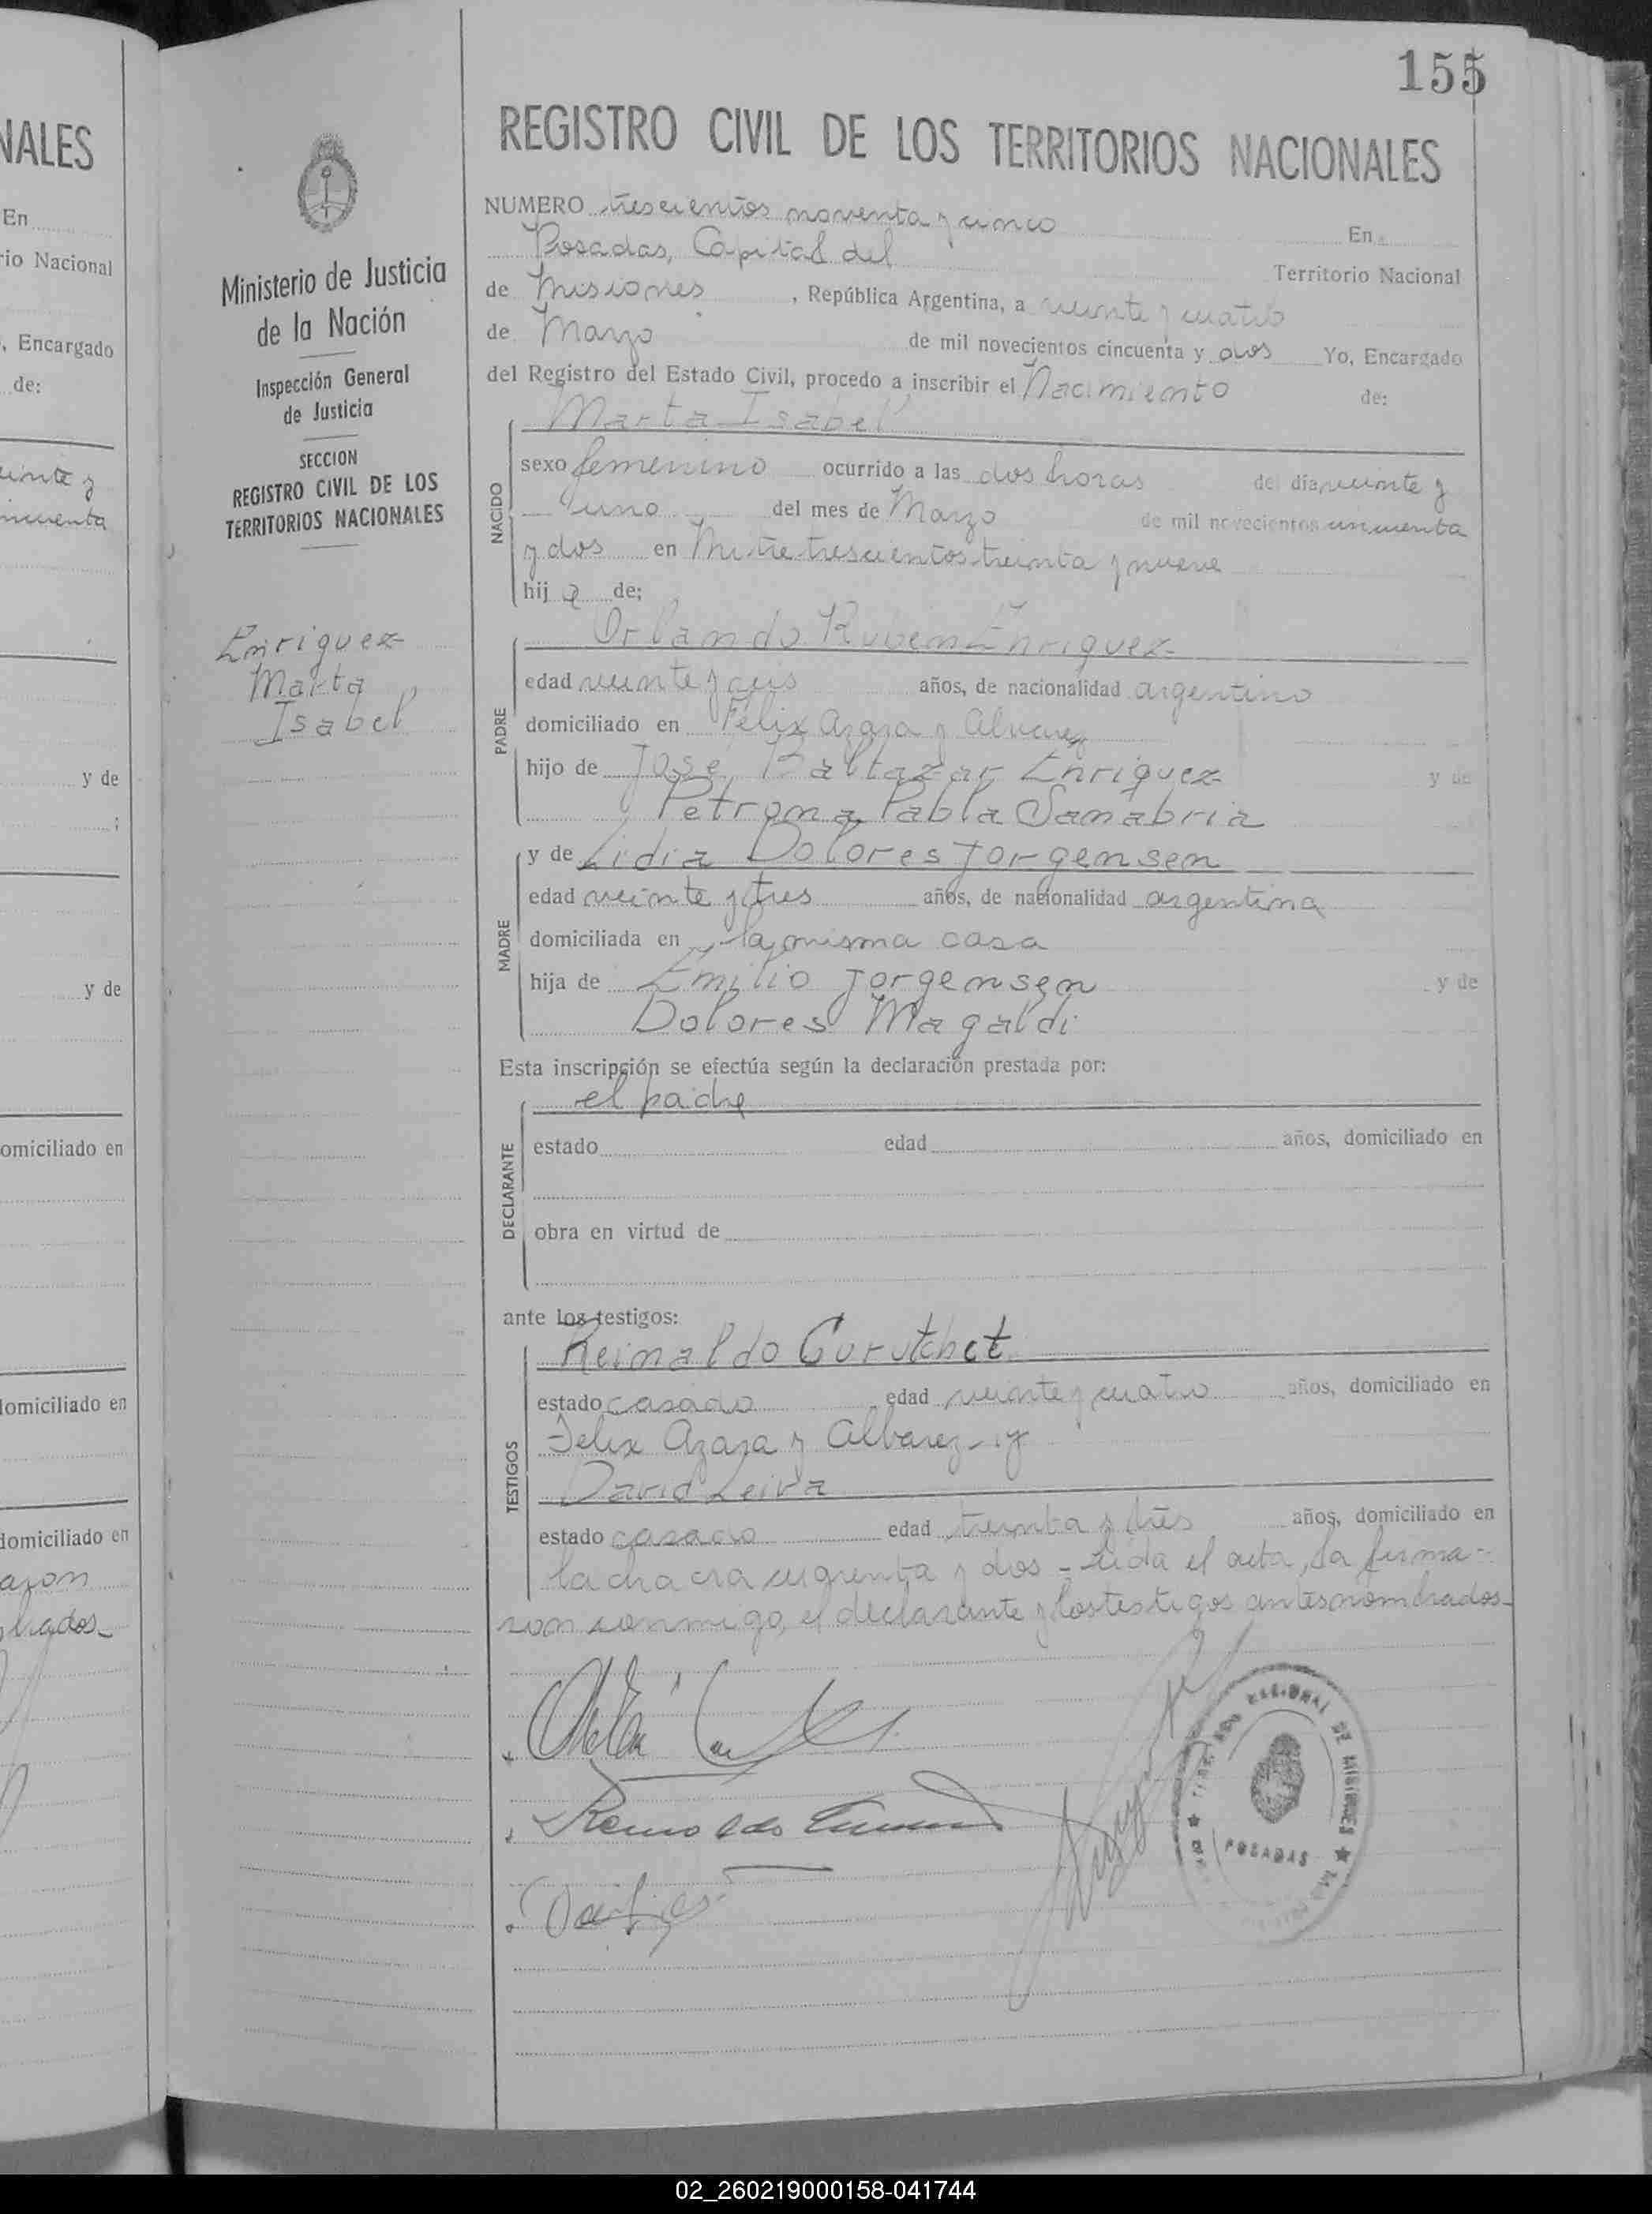 155
NALES
En
rio Nacional
, Encargado
de:
uinte y
ncuenta
y de
;
y de
omiciliado en
domiciliado en
domiciliado en
Ministerio de Justicia
de la Nación
Inspección General
de Justicia
SECCION
REGISTRO CIVIL DE LOS
TERRITORIOS NACIONALES
Enriquez
Marta
Isabel
REGISTRO CIVIL DE LOS TERRITORIOS NACIONALES
NUMERO trescientos noventa y cinco En
Posadas, Capital del Territorio Nacional
de Misiones , República Argentina, a veinte y cuatro
de Marzo de mil novecientos cincuenta y dos Yo, Encargado
del Registro del Estado Civil, procedo a inscribir el Nacimiento de:
Marta Isabel
NACIDO
sexo femenino ocurrido a las dos horas del dia veinte y
uno del mes de Marzo de mil novecientos cincuenta
y dos en Mitre trescientos treinta y nueve
hij a de;
Orlando Ruben Enriquez
PADRE
edad veinte y seis años, de nacionalidad argentino
domiciliado en Félix Azara y Alvarez
hijo de José Baltazar Enriquez y de
Petrona Pabla Sanabria
y de Lidia Dolores Jorgensen
MADRE
edad veinte y tres años, de nacionalidad argentina
domiciliada en la misma casa
hija de Emilio Jorgensen y de
Dolores Magaldi
Esta inscripción se efectúa según la declaración prestada por:
el padre
DECLARANTE
estado edad años, domiciliado en
obra en virtud de
ante los testigos:
Reinaldo Curutchet
TESTIGOS
estado casado edad veinte y cuatro años, domiciliado en
Felix Azara y Albarez - y
David Leiva
estado casado edad treinta y tres años, domiciliado en
la chacra cuarenta y dos - Leida el acta, la firma-
ron conmigo, el declarante y los testigos antes nombrados-
POSADAS
02_260219000158-041744